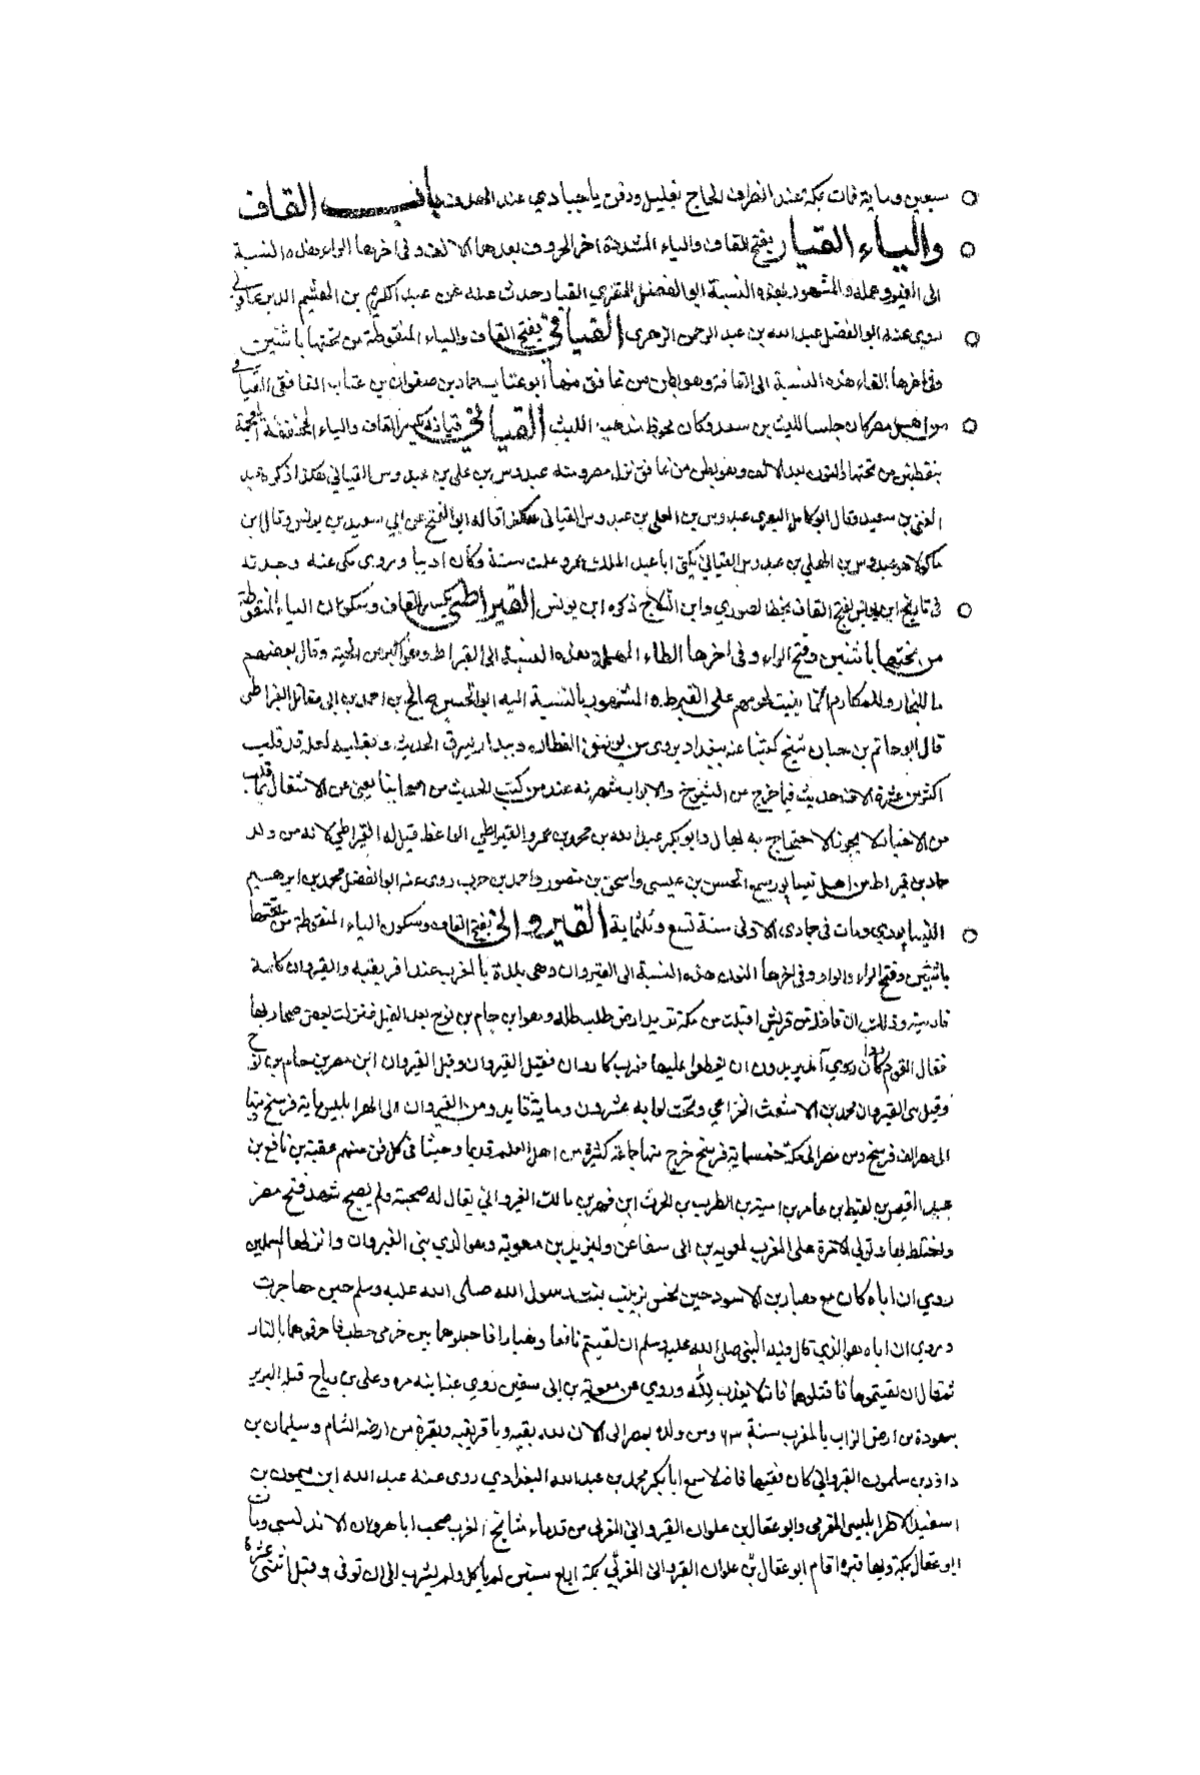 سبعين وماية ومات بمكة عند انصراف الحاج بقليل ودفن باجيادي عند باب القاف
والياء القيار بفتح القاف والياء المشددة اخر الحروف بعدها الالف وفي اخرها الراء هذه النسبة
الى القير وعمله والمشهور بهذه النسبة ابو الفضل المقري القيار حدث عنه عن عبد الكريم بن الهيثم الديرعاقولي
روى عنه ابو الفضل عبد الله بن عبد الرحمن الزهرى القيافي بفتح القاف والياء المنقوطة من تحتها باثنتين
وفي اخرها الفاء هذه النسبة الى القيافة وهو بطن من غافق منها ابو عتاب حماد بن صفوان بن عتاب الغافقي القيافي
من اهل مصر كان جليسا لليث بن سعد وكان يحفظ مذهب الليث القياني قيانه بكسر القاف والياء المخففة المعجمة
بنقطتين من تحتها والنون بعد الالف وهو بطن من غافق نزل مصر ومنه عبدوس بن على بن عبدوس القياني هكذا ذكره عبد
الغني بن سعيد وقال ابو كامل البصري عبدوس بن المعلى بن عبدوس القياني هكذا قاله ابو الفتح عن ابي سعيد بن يونس وقال ابن
ماكولا هو عبدوس بن المعلى بن عبدوس القياني يكنى ابا عبد الملك وكان اديبا وروى مكى عنه وجدته
في تاريخ ابن يونس بفتح القاف بخط الصوري وابن الثلاج ذكره ابن يونس القيراطي بكسر القاف وسكون الياء المنقوطة
من تحتها باثنتين وفتح الراء وفي اخرها الطاء المهملة هذه النسبة الى القيراط وهو اكبر من الحبة وقال بعضهم
ما للتجار وللمكارم انما نبتت لحومهم على القيراط والمشهور بالنسبة اليه ابو الحسين صالح بن احمد بن ابى مقاتل القيراطى
قال ابو حاتم بن حبان شيخ كتبنا عنه ببغداد يروى عن يوسف القطان وبندار يسرق الحديث و يقلبه لعله قد قلب
اكثر من عشرة الاف حديث فيما خرج من الشيوخ والابواب شهرته عند من كتب الحديث من اصحابنا يغنى عن الاشتغال بما قلب
من الاخبار لا يجوز الاحتجاج به بحال وابو بكر عبد الله بن محمد بن عمرو القيراطي الواعظ قيل له القيراطي لانه من ولد
حماد بن قيراط من اهل نيسابور سمع الحسن بن عيسى واسحق بن منصور واحمد بن حرب روى عنه ابو الفضل محمد بن ابرهيم
النيسابوري ومات في جمادى الاولى سنة تسع وثلثماية القيرواني بفتح القاف وسكون الياء المنقوطة من تحتها
باثنتين وفتح الراء والواو وفي اخرها النون هذه النسبة الى القيروان وهى بلدة بالمغرب عند افريقية والقيروان كلمة
فارسية وذلك ان قافلة من قريش اقبلت من مكة تريد ارض وهو ابن حام بن نوح بعد الفيل فنزلت ببعض صحاريها
فقال القوم كاروان اي انهم يريدون ان يغطوا عليها فعرب كاروان فقيل القيروان وقيل القيروان ابن مصر بن حام بن نوح
وقيل بنى القيروان محمد بن الاشعث الخزاعي وتحت لوايه عشرون وماية قايد ومن القيروان الى اطرابلس ماية فرسخ منها
الى مصر الف فرسخ ومن مصر الى مكة خمسماية فرسخ خرج منها جماعة كثيرة من اهل العلم قديما وحديثا في كل فن منهم عقبة بن نافع بن
عبد القيس بن لقيط بن عامر بن امية بن الظرب بن الحرث ابن فهر بن مالك القيرواني يقال له صحبة ولم يصح شهد فتح مصر
واختط بها وتولى الامرة على المغرب لمعوية بن ابى سفين وليزيد بن معوية وهو الذي بنى القيروان وانزلها المسلمين
روي ان اباه كان مع هبار بن الاسود حين نخس بزينب بنت رسول الله صلى الله عليه وسلم حين هاجرت
وروي ان اباه هو الذي قال فيه النبي صلى الله عليه وسلم ان لقيتم نافعا وهبارا فاجعلوهما بين حزمتي حطب فاحرقوهما بالنار
ثم قال ان لقيتموهما فاقتلوهما فانما لا يعذب الله وروي عن معوية بن ابى سفين روي عنه ابنه مره وعلى بن رباح قتله البربر
بتهودة من ارض الزاب بالمغرب سنة ٦٣ ومن ولده بمصر الى الان لله بقيه وبافريقيه وبقرية من ارض الشام وسليمان بن
داود بن سلمون القيرواني كان فقيها فاضلا سمع ابا بكر محمد بن عبد الله البغدادي روى عنه عبد الله ابن ميمون بن
اسعيد الاطرابلسي المغربي وابو عقال بن علوان القيرواني المغربي من قدماء مشايخ الغرب صحب ابا هرون الاندلسي ومات
ابو عقال بمكة وبها قبره اقام ابو عقال بن علوان القيروانى المغربي بمكة اربع سنين لم ياكل ولم يشرب الى ان توفى وقيل اثنتى عشرة